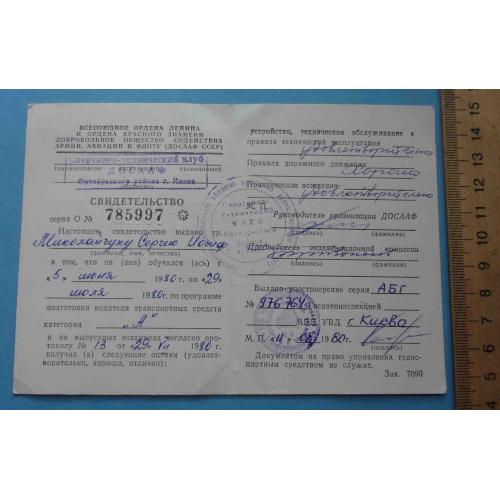 ВСЕСОЮЗНОЕ ОРДЕНА ЛЕНИНА
И ОРДЕНА КРАСНОГО ЗНАМЕНИ
ДОБРОВОЛЬНОЕ ОБЩЕСТВО СОДЕЙСТВИЯ
АРМИИ, АВИАЦИИ И ФЛОТУ (ДОСААФ СССР)
Спортивно-технический клуб
ДОСААФ
Октябрьского района г. Киева
СВИДЕТЕЛЬСТВО
серия О № 785997
Настоящее свидетельство выдано гр.
Миколайчуку Сергею Иосиф.
(фамилия, имя, отчество)
в том, что он (она) обучался (ась) с
«5» июня 1980 г. по «29»
июля 1980 г. по программе
подготовки водителя транспортных средств
категории „А"
и на выпускных экзаменах согласно протоколу № 13 от «29» VII 1980 г.
получил (а) следующие оценки (удовлетворительно, хорошо, отлично):
устройство, техническое обслуживание и
правила технической эксплуатации
удовлетворительно
Правила дорожного движения
Хорошо
Практическое вождение
удовлетворительно
М. П.
Руководитель организации ДОСААФ
(подпись) (фамилия)
Председатель экзаменационной комиссии
(подпись) (фамилия)
Выдано удостоверение серии АБГ
№ 976764 Госавтоинспекцией
УВД г. Киева
М. П. «11» 1980 г.
(подпись)
Документом на право управления транспортным средством не служит.
Зак. 7090
4 5 6 7 8 9 10 11 12 13 14 15